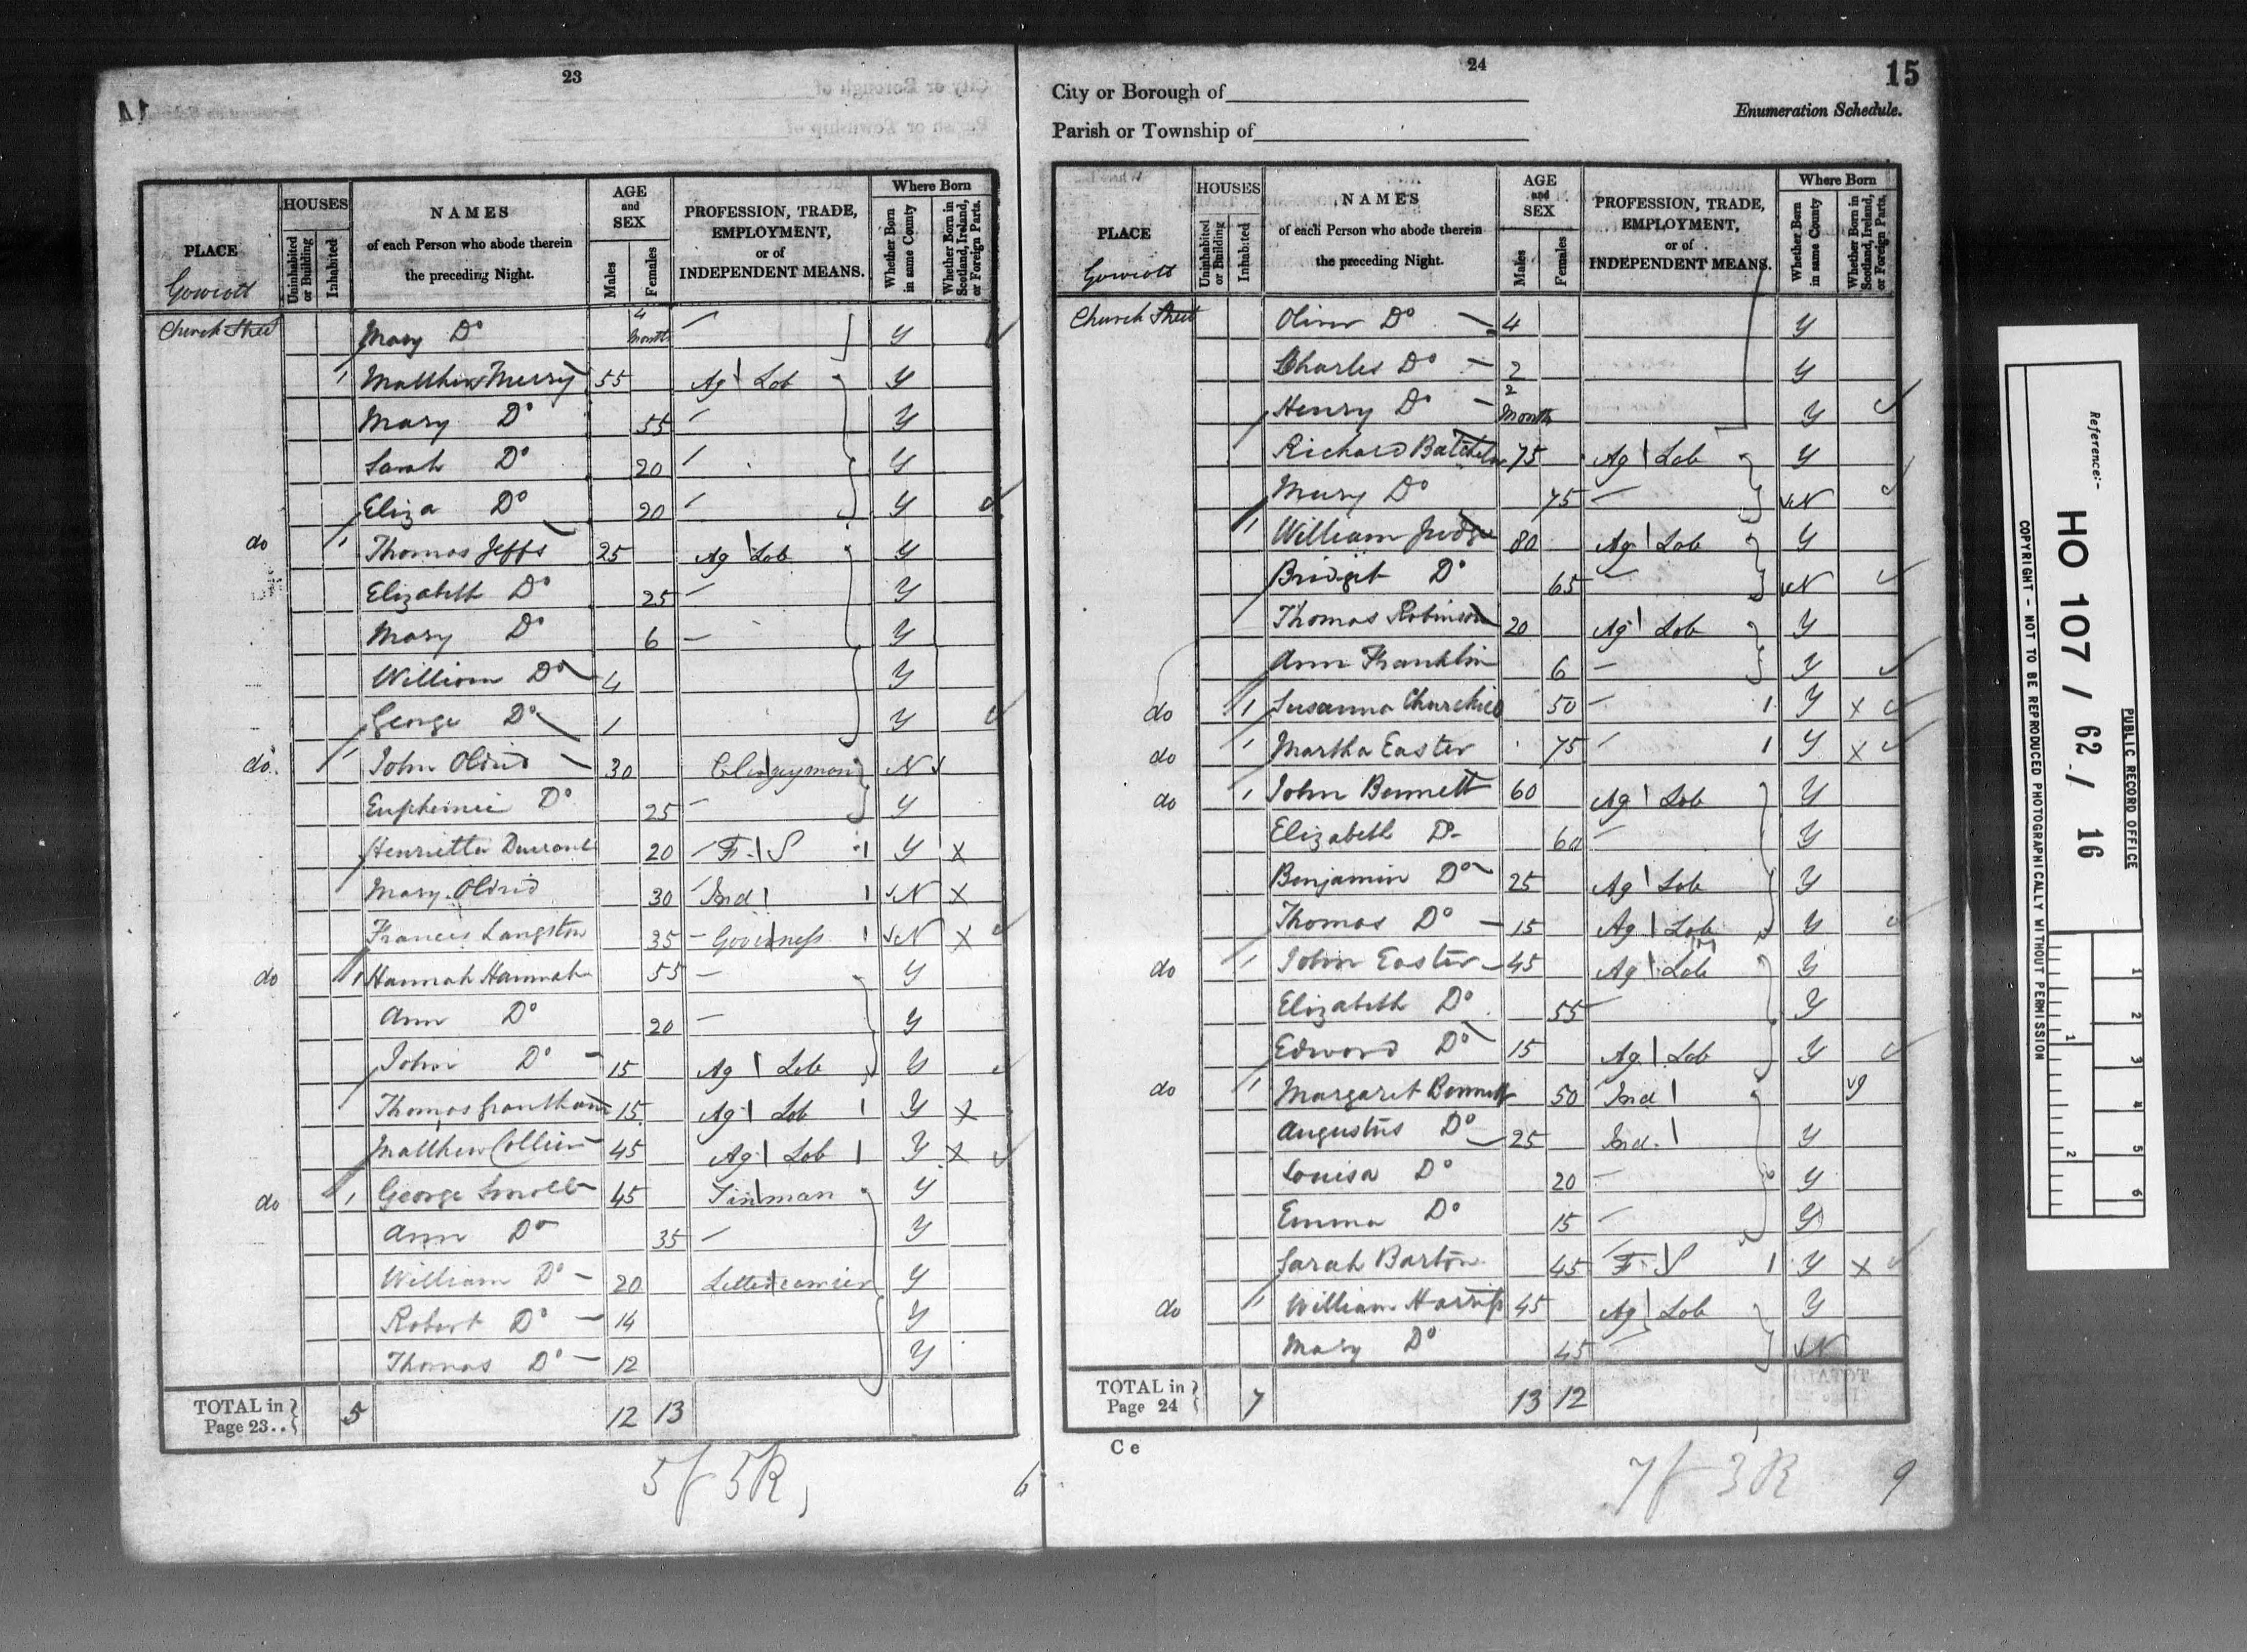 23
PLACE
HOUSES
Uninhabited or Building
Inhabited
NAMES
of each Person who abode therein
the preceding Night.
AGE
and
SEX
Males
Females
PROFESSION, TRADE,
EMPLOYMENT,
or of
INDEPENDENT MEANS.
Where Born
Whether Born in same County
Whether Born in Scotland, Ireland, or Foreign Parts.
Church Street Mary Do 4 months Y
1 Matthew Merry 55 Ag Lab Y
Mary Do 55 Y
Sarah Do 20 Y
Eliza Do 20 Y
do 1 Thomas Jeffs 25 Ag Lab Y
Elizabeth Do 25 Y
Mary Do 6 Y
William Do 4 Y
George Do 1 Y
do 1 John Oldrid 30 Clergyman N
Euphemia Do 25 Y
Henrietta 20 F. S 1 Y X
Mary Oldrid 30 Ind 1 N X
Frances Langston 35 Governess 1 N X
do 1 Hannah Hannah 55 Y
Ann Do 20 Y
John Do 15 Ag Lab Y
Thomas Grantham 15 Ag Lab 1 Y X
Matthew Collier 45 Ag Lab 1 Y X
do 1 George 45 Tinman Y
Ann Do 35 Y
William Do 20 Letter carrier Y
Robert Do 14 Y
Thomas Do 12 Y
TOTAL in Page 23.. 5 12 13
5f 5R
6
24
15
City or Borough of
Parish or Township of
Enumeration Schedule.
PLACE
HOUSES
Uninhabited or Building
Inhabited
NAMES
of each Person who abode therein
the preceding Night.
AGE
and
SEX
Males
Females
PROFESSION, TRADE,
EMPLOYMENT,
or of
INDEPENDENT MEANS.
Where Born
Whether Born in same County
Whether Born in Scotland, Ireland, or Foreign Parts.
Church Street Oliver Do 4 Y
Charles Do 2 Y
Henry Do 2 Months Y
Richard Batchelor 75 Ag Lab Y
Mary Do 75 N
1 William Judge 80 Ag Lab Y
Bridget Do 65 N
Thomas Robinson 20 Ag Lab Y
Ann Franklin 6 Y
do 1 Susanna Churchill 50 1 Y X
do 1 Martha Easter 75 1 Y X
do 1 John Bennett 60 Ag Lab Y
Elizabeth Do 60 Y
Benjamin Do 25 Ag Lab Y
Thomas Do 15 Ag Lab Y
do 1 John Easter 45 Ag Lab Y
Elizabeth Do 55 Y
Edward Do 15 Ag Lab Y
do 1 Margaret Bennett 50 Ind
Augustus Do 25 Ind. Y
Louisa Do 20 Y
Emma Do 15 Y
Sarah Barton 45 F. S 1 Y X
do 1 William Harriss 45 Ag Lab Y
Mary Do 45 N
TOTAL in Page 24 7 13 12
C e
7f 3R
9
Reference:-
HO 107 / 62 / 16
PUBLIC RECORD OFFICE
COPYRIGHT - NOT TO BE REPRODUCED PHOTOGRAPHICALLY WITHOUT PERMISSION
1
2
3
4
5
6
1
2